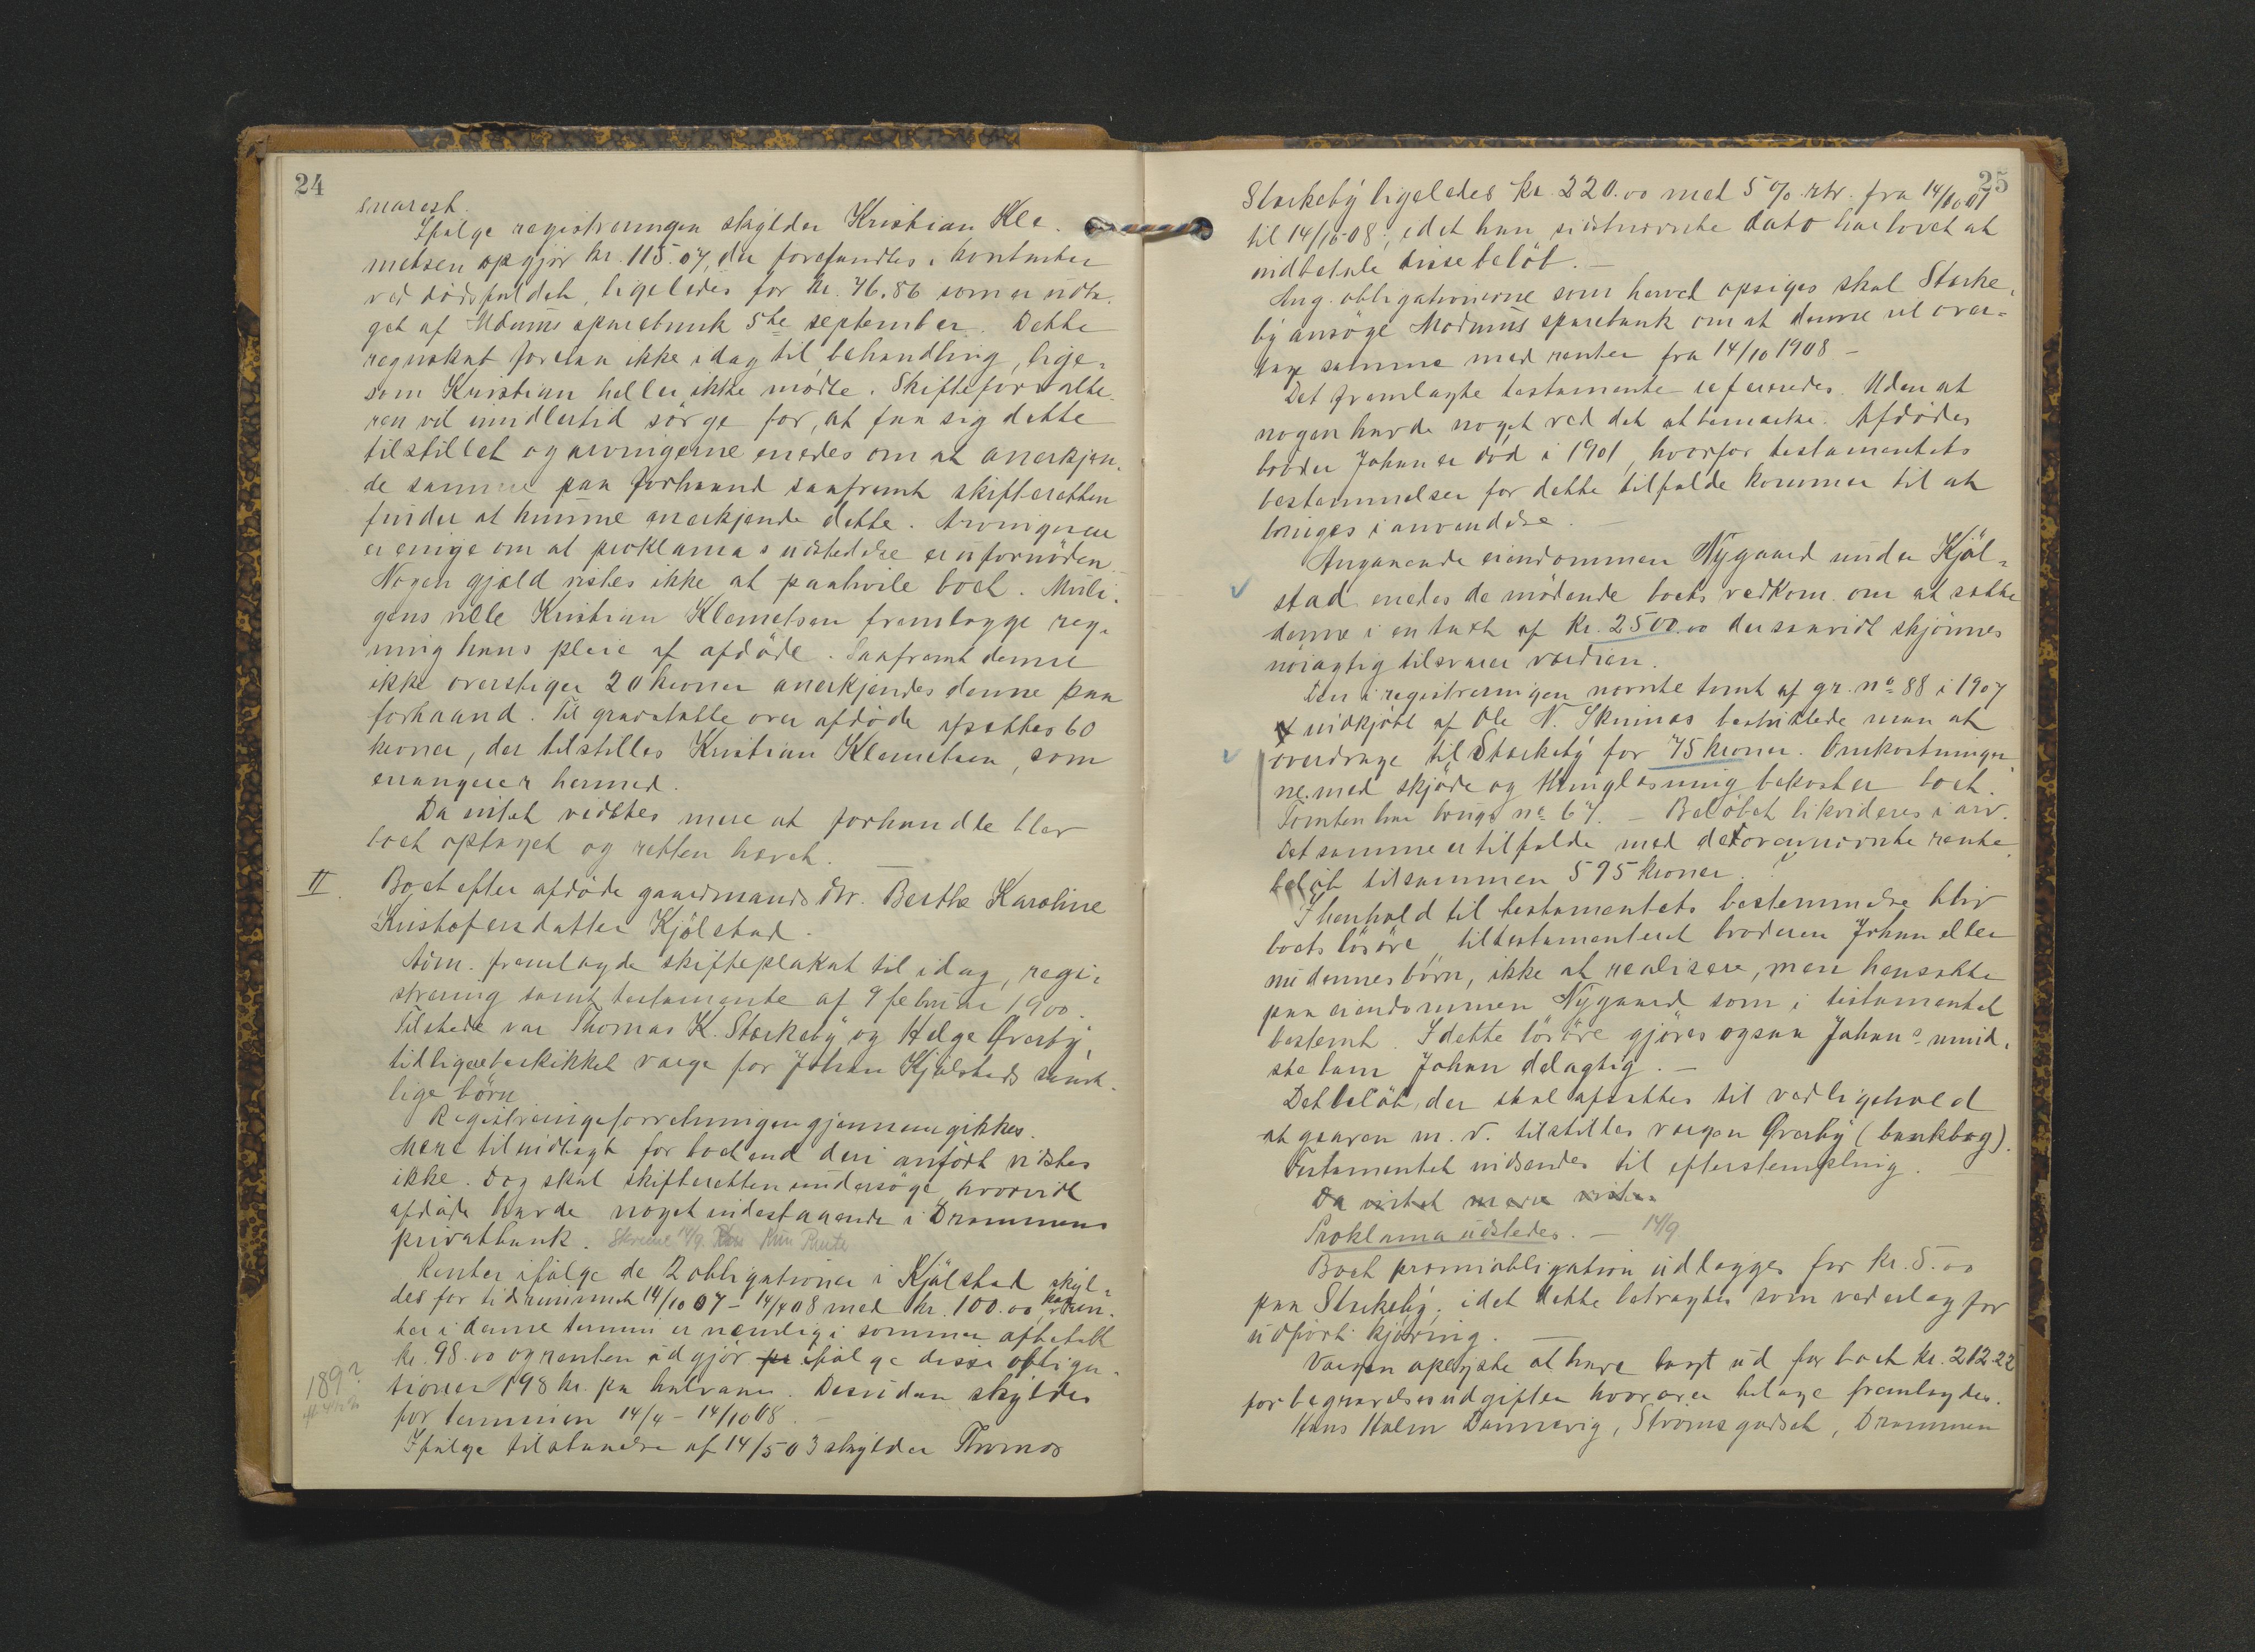 24
snarest.
Ifølge registreringen skylder Kristian Kle-
metsen opgjör kr. 115.07, der forefandtes i kontanter
ved dödsfaldet, ligeledes for kr. 46.86 som er udta-
get af Modums sparebank 5te september. Dette
regnskab forelaa ikke idag til behandling, lige-
som Kristian heller ikke mødte. Skifteforvalte-
ren vil imidlertid sörge for, at faa sig dette
tilstillet og arvingerne enedes om at anerkjen-
de samme paa forhaand saafremt skifteretten
finder at kunne anerkjende dette. Arvingerne
er enige om at proklamas udstedelse er ufornöden.
Nogen gjæld vistes ikke at paahvile boet. Muli-
gens vilde Kristian Klemetsen fremlægge reg-
ning hans pleie af afdöde. Saafremt denne
ikke overstiger 20 kroner anerkjendes denne paa
forhaand. Til gravstøtte over afdöde afsættes 60
kroner, der tilstilles Kristian Klemetsen, som
arrangerer hermed.
Da intet vidstes mere at forhandle blev
boet optaget og retten hævet.
II. Boet efter afdöde gaardmands dtr. Berthe Karoline
Kristofersdatter Kjölstad.
Adm. fremlagde skifteplakat til idag, regi-
strering samt testamente af 9 februar 1900.
Tilstede var Thomas K. Starkeby og Helge Øverby,
tidligere beskikket værge for Johan Kjølstads samt-
lige børn
Registreringsforretningen gjennemgikkes.
Mere tilindtægt for boet end deri anfört vidstes
ikke. Dog skal skifteretten undersöge hvorvidt
afdöde havde noget indestaaende i Drammens
privatbank. Skrevet 14/9.
Renter ifølge de 2 obligationer i Kjølstad skyl-
des for tidsrummet 14/10 07 - 14/4 08 med kr. 100.00, paa ren-
ter i denne termin er nemlig i sommer afbetalt
kr. 98.00 og renten udgjör ifølge disse obliga-
189?
tioner 198 kr. pr halvaar. Desuden skyldes
for terminen 14/4 - 14/10 08.
Ifølge tilstaaelse af 14/5 03 skylder Thomas
25
Starkeby ligeledes kr. 220.00 med 5 % rtr. fra 14/10 07
til 14/10-08, idet han sidstnævnte dato har lovet at
indbetale disse beløb.
Ang. obligationerne som herved opsiges skal Starke-
by ansöge Modums sparebank om at denne vil over-
tage samme med renter fra 14/10 1908 -
Det fremlagte testamente refereredes. Uden at
nogen havde noget ved det at bemærke. Afdödes
broder Johan er död i 1901, hvorfor testamentets
bestemmelser for dette tilfælde kommer til at
bringes i anvendelse.
Angaaende eiendommen Nygaard under Kjöl-
stad enedes de mödende boets vedkom. om at sætte
denne i en taxt af kr. 2500.00 der saavidt skjönnes
nöiagtig tilsvarer værdien.
Den i registreringen nævnte tomt af gr. no 88 i 1907
indkjöbt af Ole N. Skuinas besluttede man at
overdrage til Starkeby for 75 kroner. Omkostninger-
ne med skjöde og thinglæsning bekoster boet.
Tomten har brugs no 67. - Belöbet likvideres i arv.
Det samme er tilfælde med de forannævnte rente-
beløb tilsammen 595 kroner.
I henhold til testamentets bestemmelse blir
boets lösöre tiltestamenteret broderen Johan eller
nu dennes børn, ikke at realisere, men hensætte
paa eiendommen Nygaard som i testamentet
bestemt. I dette lösöre gjöres ogsaa Johans umid-
ste barn Johan delagtig. -
Det beløb, der skal afsættes til vedligehold
at gaarden m.v. tilstilles værgen Øverby (bankbog).
Testamentet indsendes til efterstempling.
Da intet mere vistes
Proklama udstedes. - 14/9
Boet præmiobligation udlægges for kr. 5.00
paa Starkeby, idet dette betragtes som vederlag for
udfört kjöring.
Værgen oplyste at have lagt ud for boet kr. 212.22
for begravelsesudgifter hvorover bilage fremlagdes.
Hans Holm Dannevig, Strömsgodset, Drammen